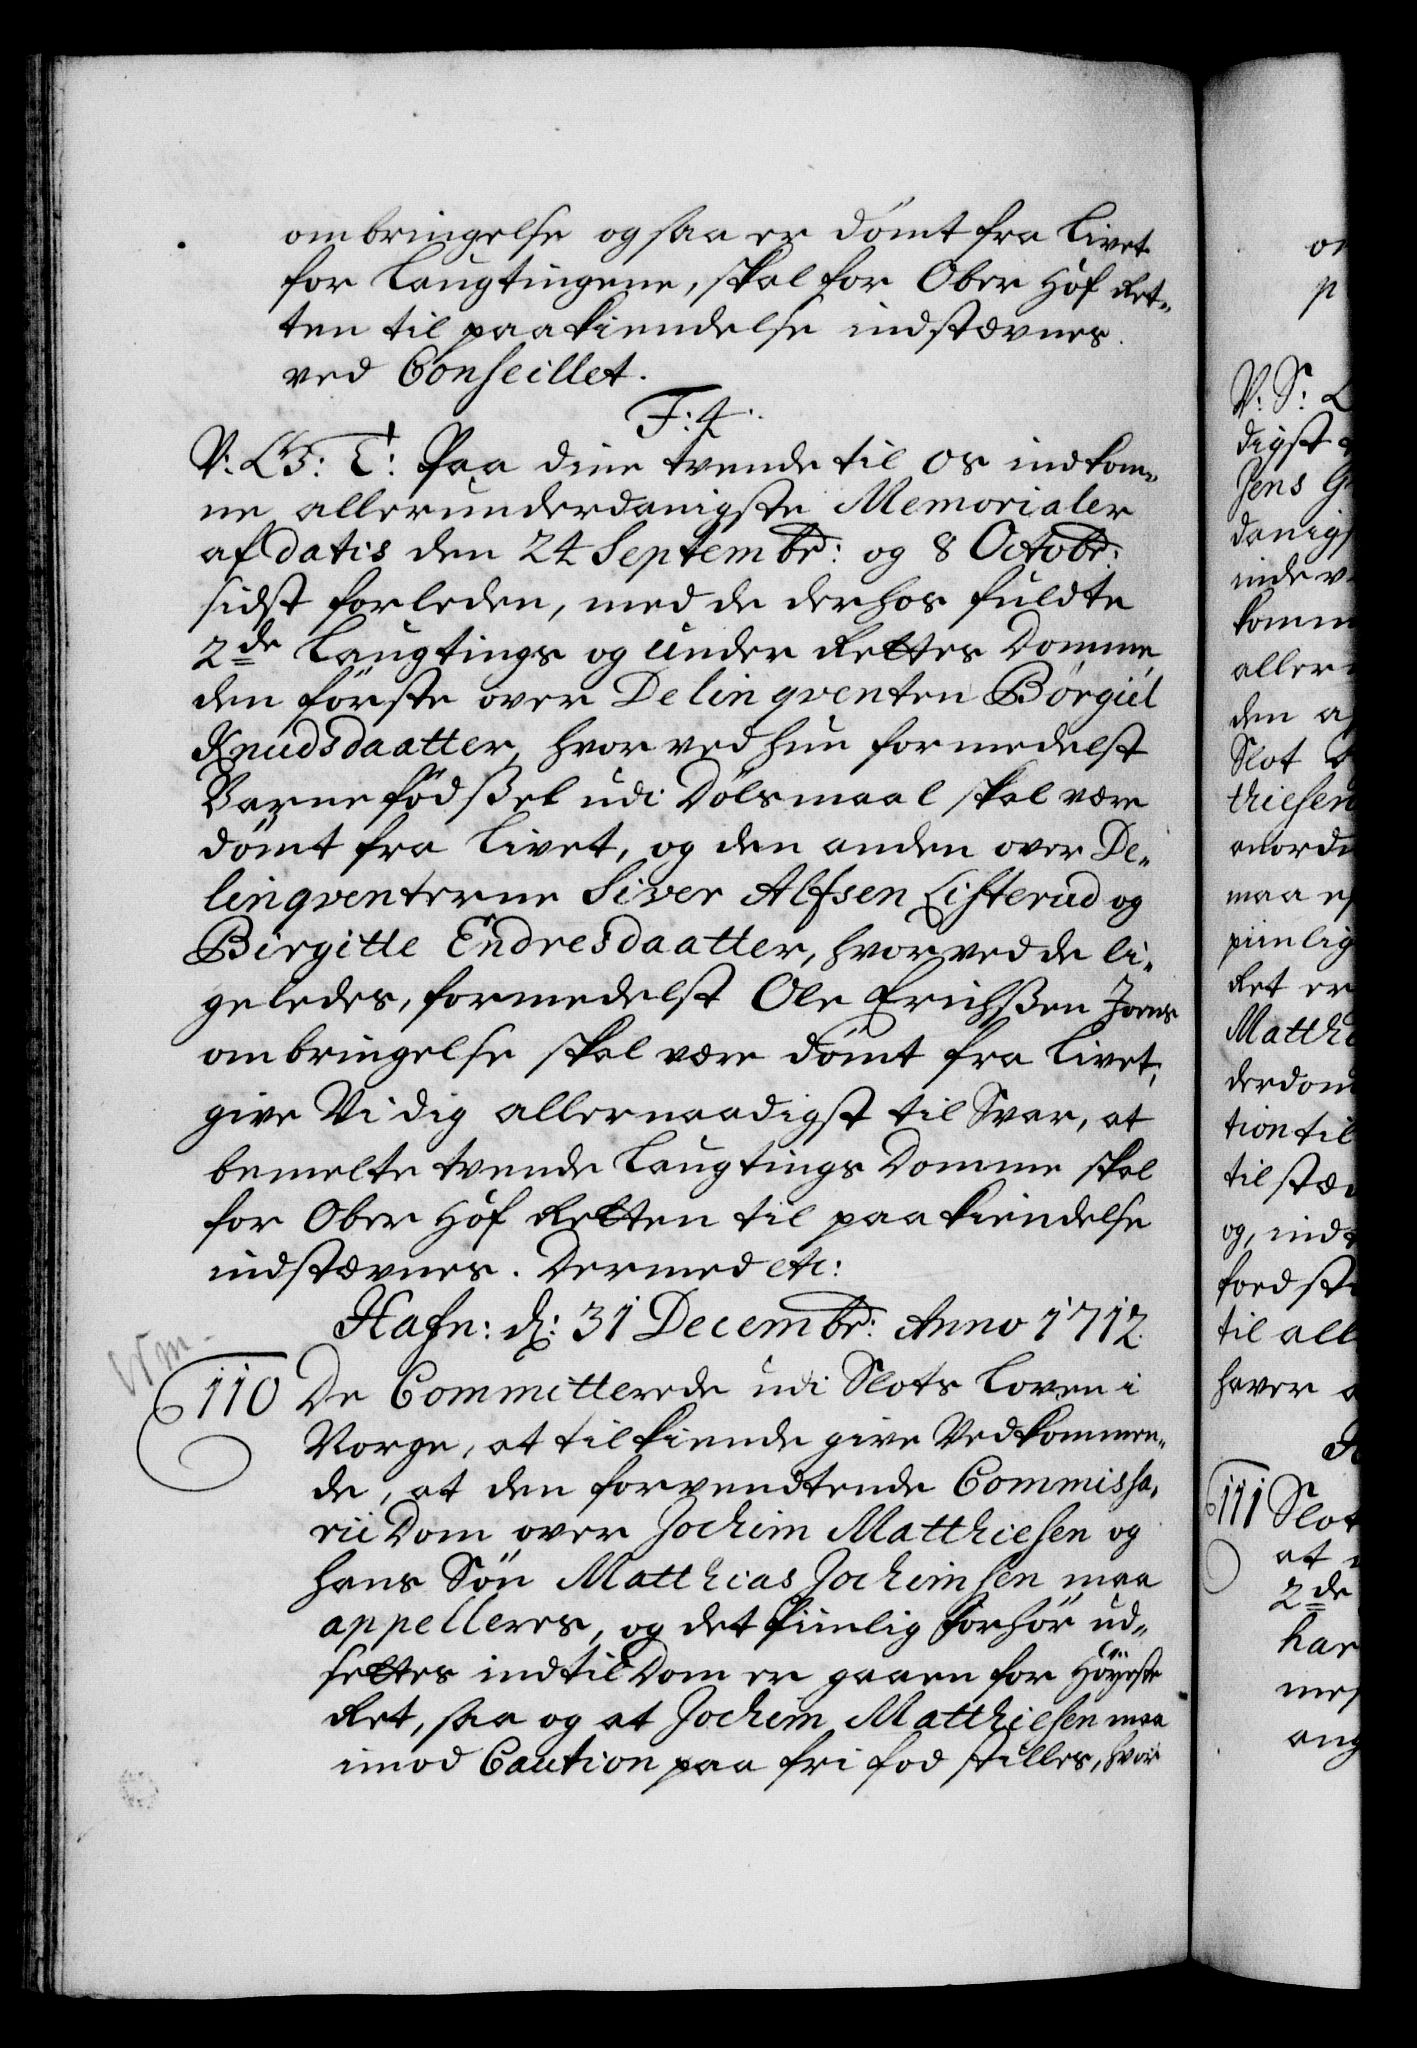 ombringelse ogsaa er dömt fra Livet
for Laugtingene, skal for Ober Hof Ret-
ten til paakiendelse indstævnes
ved Conseillet.
F: 4.
V: G: T: Paa dine tvende til os indkom-
ne allerunderdanigste Memorialer
af datis den 24 Septembr: og 8 Octobr:
sidst forleden, med de derhos fuldte
2de Laugtings og Under Rettes Domme,
den förste over Delinqventen Börgül
Knudsdaatter, hvorved hun formedelst
Barnefödsßel udi Dölsmaal skal være
dömt fra Livet, og den anden over De-
linqventerne Siver Alfsen Listerud og
Birgitte Endresdaatter, hvorved de li-
geledes, formedelst Ole Erichsßen Joens
ombringelse skal være dömt fra Livet,
give Vi dig allernaadigst til Svar, at
bemelte tvende Laugtings Domme skal
for Ober Hof Retten til paakiendelse
indstævnes. Dermed etc:
Hafn: d: 31 Decembr: Anno 1712.
110 De Committerede udi Slots Loven i
Norge, at tilkiende give Vedkommen-
de, at den forventende Commissa-
rii Dom over Jochim Matthiesen og
hans Sön Matthias Jochimsen maa
appelleres, og det piinlig Forhör ud-
settes indtil Dom er gaaen for Höyeste
Ret, saa og at Jochim Matthiesen maa
imod Caution paa fri fod stilles, hvor
V: S: L
digst
Jens G
danigs
inde v
komm
aller
den a
Slot
thiesen
anord
maa
piinlig
Ret er
Matthi
derdom
tion til
til stæ
og, ind
foed st
til all
haver a
111 Slot
at
2de
har
mes
ang